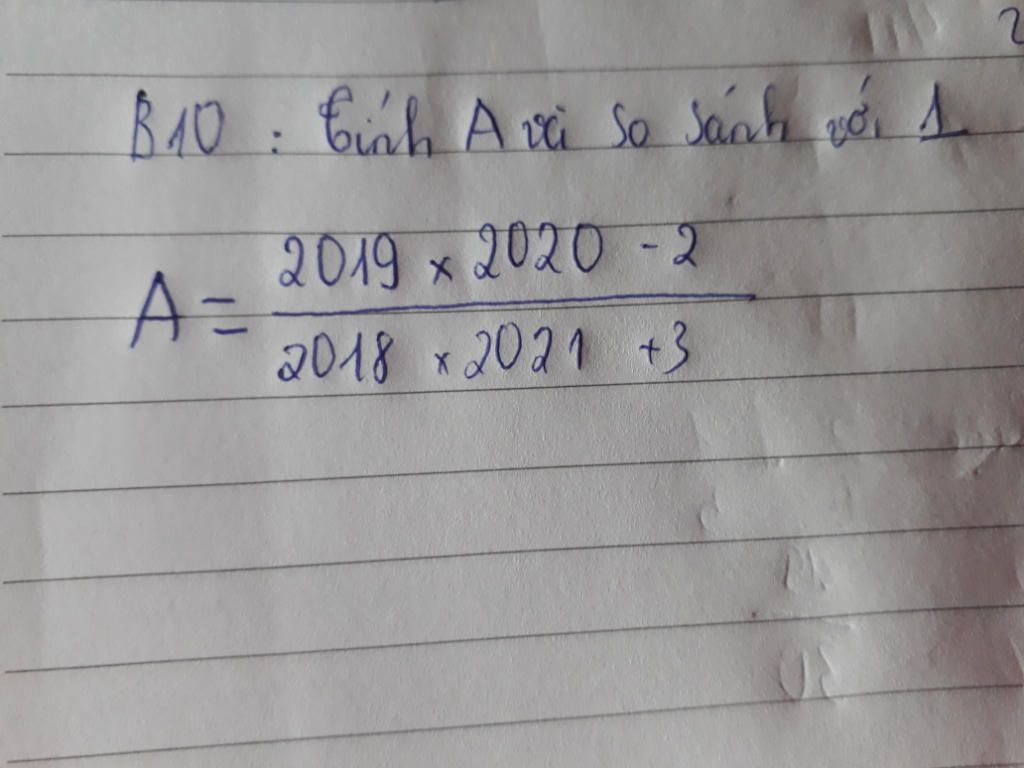 B10 : Tính A và so sánh với 1
A = 2019 × 2020 - 2
2018 × 2021 + 3